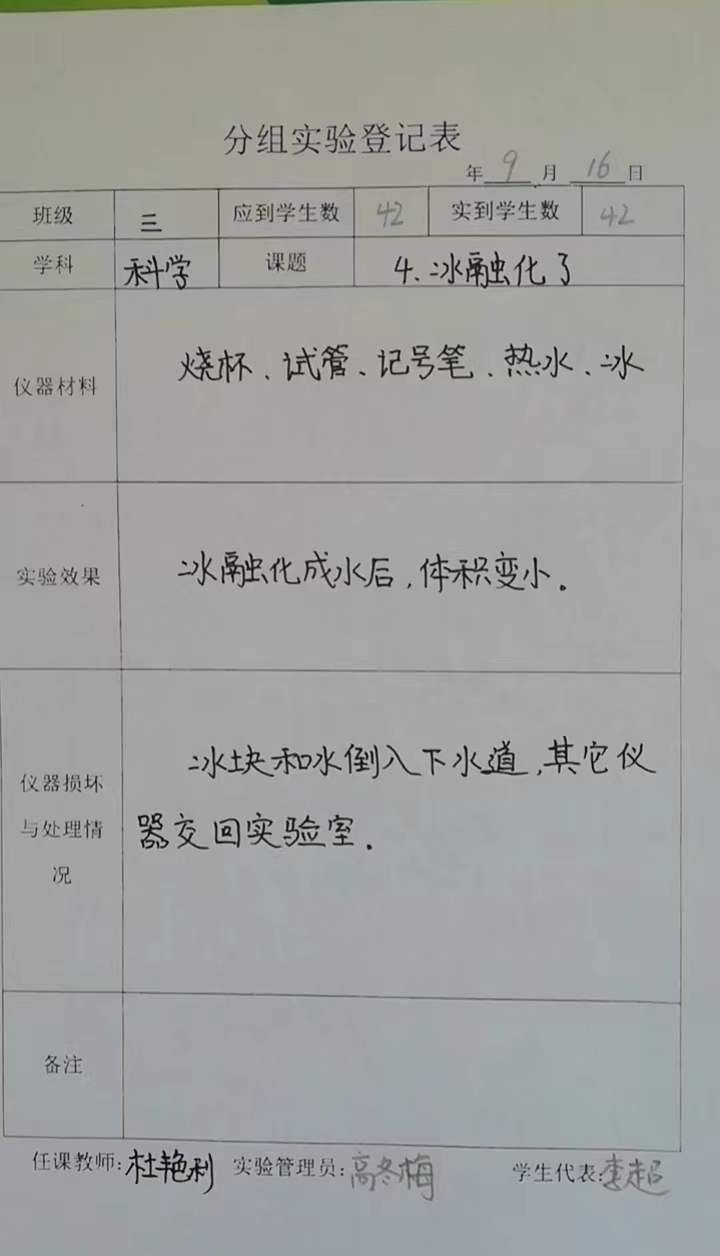 分组实验登记表
年 9 月 16 日
班级 三 应到学生数 42 实到学生数 42
学科 科学 课题 4.冰融化了
仪器材料 烧杯、试管、记号笔、热水、冰
实验效果 冰融化成水后,体积变小.
冰块和水倒入下水道,其它仪
仪器损坏
与处理情 器交回实验室.
况
备注
任课教师:杜艳利 实验管理员:高冬梅 学生代表:李超